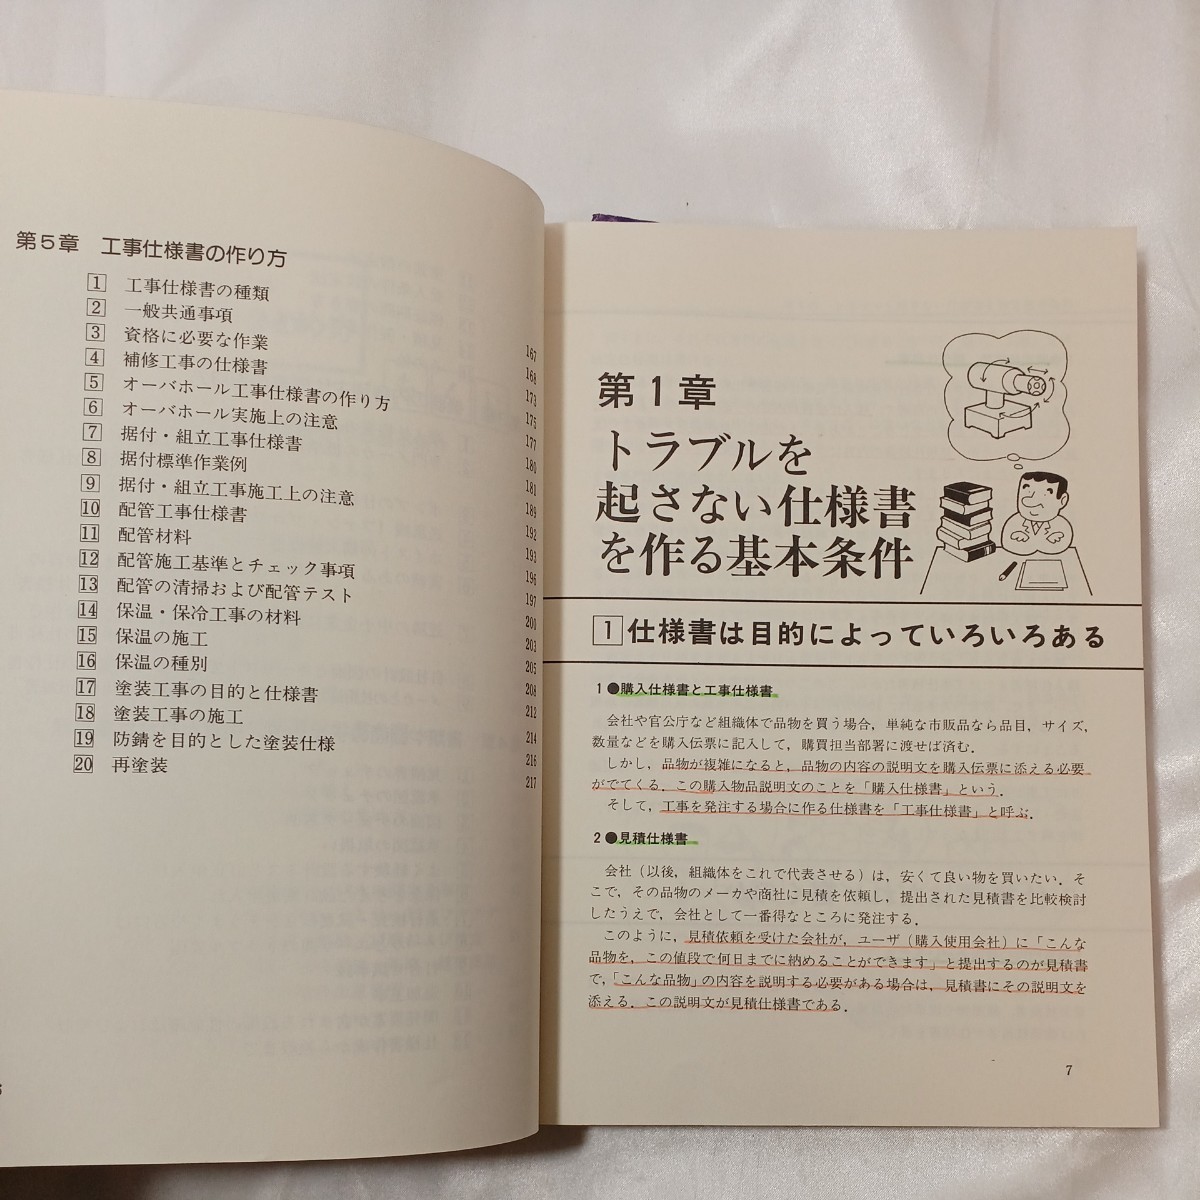 第5章 工事仕様書の作り方
1 工事仕様書の種類 167
2 一般共通事項 168
3 資格に必要な作業 173
4 補修工事の仕様書 175
5 オーバホール工事仕様書の作り方 177
6 オーバホール実施上の注意 180
7 据付・組立工事仕様書 181
8 据付標準作業例 189
9 据付・組立工事施工上の注意 192
10 配管工事仕様書 193
11 配管材料 196
12 配管施工基準とチェック事項 197
13 配管の清掃および配管テスト 200
14 保温・保冷工事の材料 203
15 保温の施工 205
16 保温の種別 208
17 塗装工事の目的と仕様書 212
18 塗装工事の施工 214
19 防錆を目的とした塗装仕様 216
20 再塗装 217
第1章
トラブルを
起さない仕様書
を作る基本条件
1 仕様書は目的によっていろいろある
1●購入仕様書と工事仕様書
会社や官公庁など組織体で品物を買う場合，単純な市販品なら品目，サイズ，
数量などを購入伝票に記入して，購買担当部署に渡せば済む．
しかし，品物が複雑になると，品物の内容の説明文を購入伝票に添える必要
がでてくる．この購入物品説明文のことを「購入仕様書」という．
そして，工事を発注する場合に作る仕様書を「工事仕様書」と呼ぶ．
2●見積仕様書
会社（以後，組織体をこれで代表させる）は，安くて良い物を買いたい．そ
こで，その品物のメーカや商社に見積を依頼し，提出された見積書を比較検討
したうえで，会社として一番得なところに発注する．
このように，見積依頼を受けた会社が，ユーザ（購入使用会社）に「こんな
品物を，この値段で何日までに納めることができます」と提出するのが見積書
で，「こんな品物」の内容を説明する必要がある場合は，見積書にその説明文を
添える．この説明文が見積仕様書である．
7